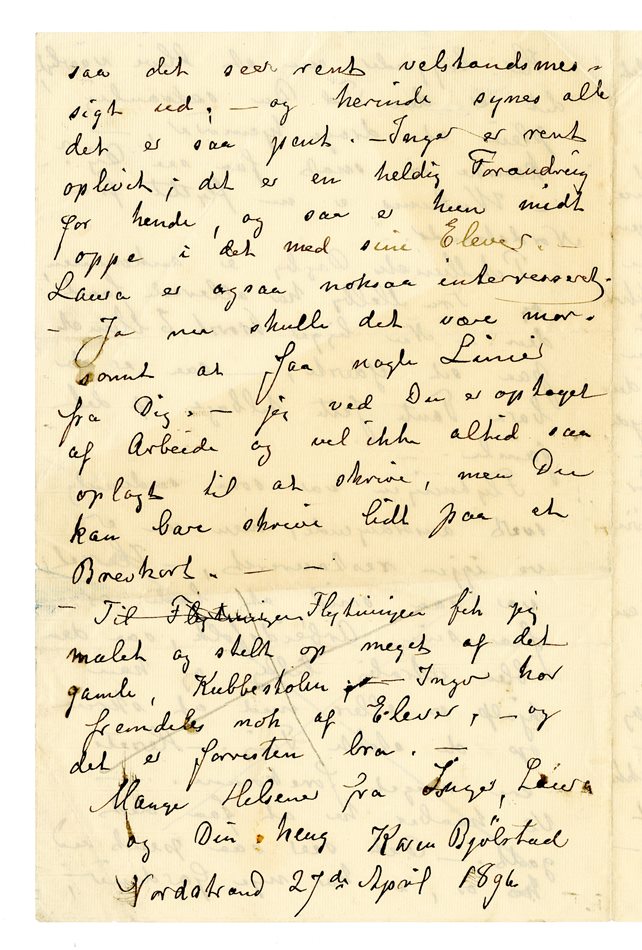 saa det seer rent velstandsmes-
sigt ud; — og herinde synes alle
det er saa pent. — Inger er rent
oplivet; det er en heldig Forandring
for hende, og saa er hun midt
oppe i det med sine Elever. —
Laura er ogsaa noksaa interresseret.
— Ja nu skulde det være mor-
somt at faa nogle Linier
fra Dig. — jeg ved Du er optaget
af Arbeide og vel ikke altid saa
oplagt til at skrive, men Du
kan bare skrive lidt paa et
Brevkort. — —
— Til Flytningen Flytningen fik jeg
malet og stelt op meget af det
gamle, Kubbestolen — Inger har
fremdeles nok af Elever, — og
det er forresten bra. —
Mange Hilsener fra Inger, Laura
og Din heng Karen Bjølstad
Nordstrand 27de April 1896